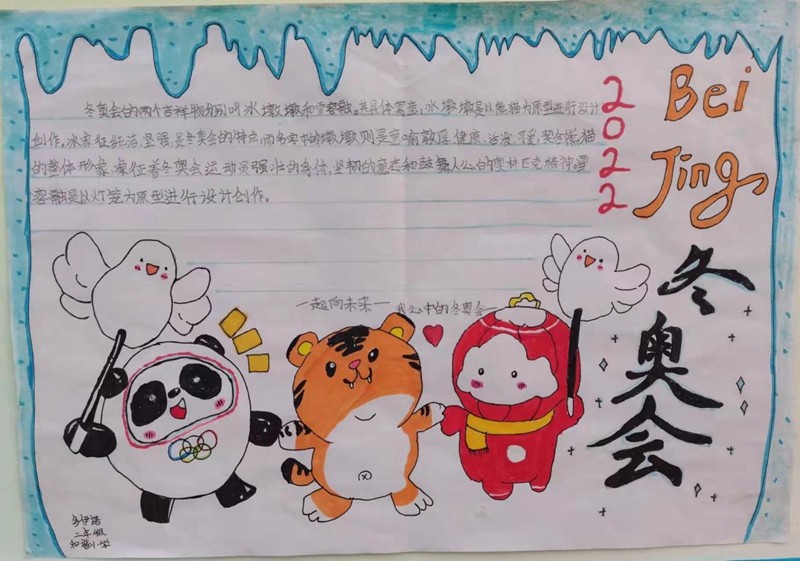 冬奥会的两个吉祥物分别叫冰墩墩和雪容融。其具体寓意：冰墩墩是以熊猫为原型进行设计
创作,冰象征纯洁、坚强是冬奥会的特点,而名字中的墩墩则是意喻敦厚、健康、活泼、可爱,契合熊猫
的整体形象,象征着冬奥会运动员强壮的身体,坚韧的意志和鼓舞人心的奥林匹克精神。雪
容融是以灯笼为原型进行设计创作。
2022
Bei
Jing
冬奥会
一起向未来一
我心中的冬奥会一
二年级